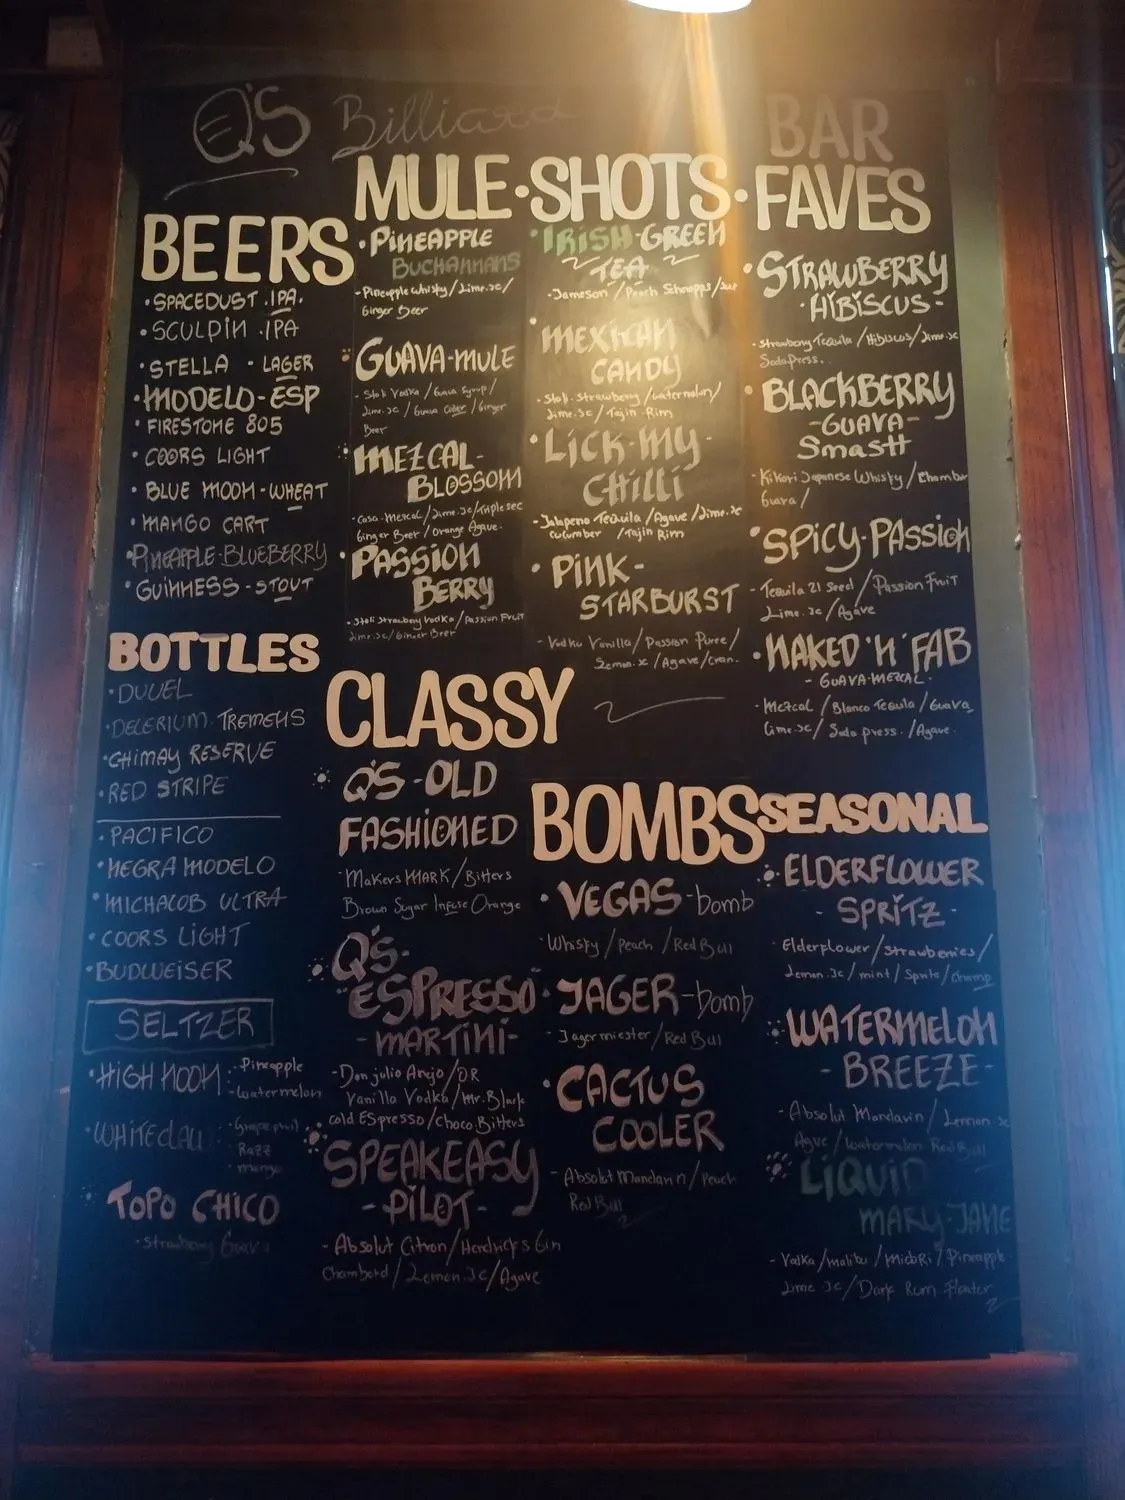 Q'S Billiard
BEERS
• SPACEDUST . IPA.
• SCULPIN . IPA
• STELLA • LAGER
• MODELO - ESP
• FIRESTONE 805
• COORS LIGHT
• BLUE MOON - WHEAT
• MANGO CART
• PINEAPPLE - BLUEBERRY
• GUINNESS - STOUT
BOTTLES
• DUVEL
• DELERIUM. TREMENS
• CHIMAY RESERVE
• RED STRIPE
• PACIFICO
• NEGRA MODELO
• MICHALOB ULTRA
• COORS LIGHT
• BUDWEISER
SELTZER
• HIGH NOON : - Pineapple
- Watermelon
• WHITECLAW : - Grapefruit
Razz
- mango
TOPO CHICO
- Strawberry Guava
MULE •
• PINEAPPLE
BUCHANNANS
- Pineapple whisky / Lime.Jc /
Ginger Beer
• GUAVA - MULE
- Stoli Vodka / Guava Syrup /
Lime.Jc / Guava Cider / Ginger
Beer
• MEZCAL -
BLOSSOM
- Casa - Mezcal / Lime.Jc / triple sec
Ginger Beer / Orange Agave -
• PASSION
BERRY
• Stoli Strawberry Vodka / Passion Fruit
Lime.Jc / Ginger Beer
SHOTS •
• IRISH - GREEN
TEA
- Jameson / Peach Schnapps /
• MEXICAN
CANDY
- Stoli. Strawberry / Watermelon /
Lime.Jc / Tajin Rim
• LICK - MY -
CHILLI
- Jalapeno Tequila / Agave / Lime.Jc
Cucumber / Tajin Rim
• PINK -
STARBURST
- Vodka Vanilla / Passion Puree /
Lemon.Jc / Agave / Cran.
BAR
FAVES
• STRAWBERRY
- HIBISCUS -
- Strawberry Tequila / Hibiscus / Lime.Jc
Soda Press.
• BLACKBERRY
- GUAVA -
SMASH
- Kikori Japanese Whisky / Chambor
Guava /
• SPICY - PASSION
- Tequila 21 Seed / Passion Fruit
Lime.Jc / Agave
• NAKED 'N' FAB
- GUAVA - MEZCAL -
- Mezcal / Blanco Tequila / Guava
Lime.Jc / Soda press. / Agave.
CLASSY
Q'S - OLD
FASHIONED
- Makers MARK / Bitters
Brown Sugar Infuse Orange
Q'S -
ESPRESSO
- MARTINI -
- Don julio Anejo / OR
Vanilla Vodka / Mr. Black
cold ESpresso / Choco Bitters
SPEAKEASY
- PILOT -
- Absolut Citron / Hendricks Gin
Chambord / Lemon.Jc / Agave
BOMBS
• VEGAS - bomb
- Whisky / Peach / Red Bull
• JAGER - bomb
- Jagermiester / Red Bull
• CACTUS
COOLER
- Absolut Mandarin / Peach
Red Bull
SEASONAL
ELDERFLOWER
- SPRITZ -
- Elderflower / Strawberries /
Lemon.Jc / mint / Sprite / Champ
WATERMELON
- BREEZE -
- Absolut Mandarin / Lemon Jc
Agve / Watermelon Red Bull
LIQUID
MARY - JANE
- Vodka / malibu / Midori / Pineapple
Lime Jc / Dark Rum Floater